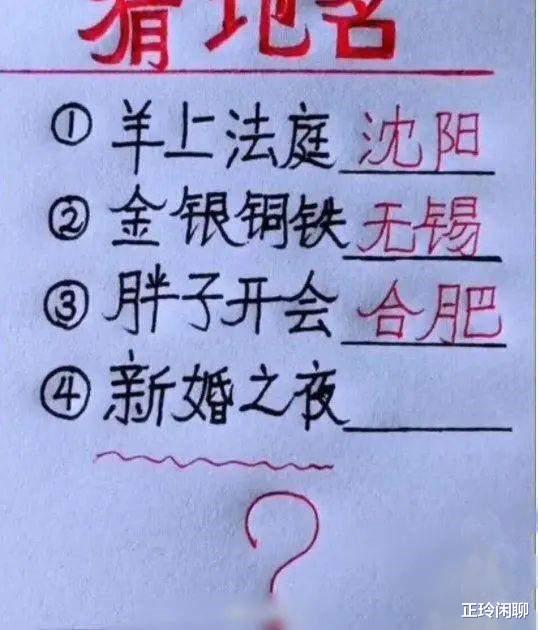 猜地名
①羊上法庭 沈阳
②金银铜铁 无锡
③胖子开会 合肥
④新婚之夜
?
正玲闲聊